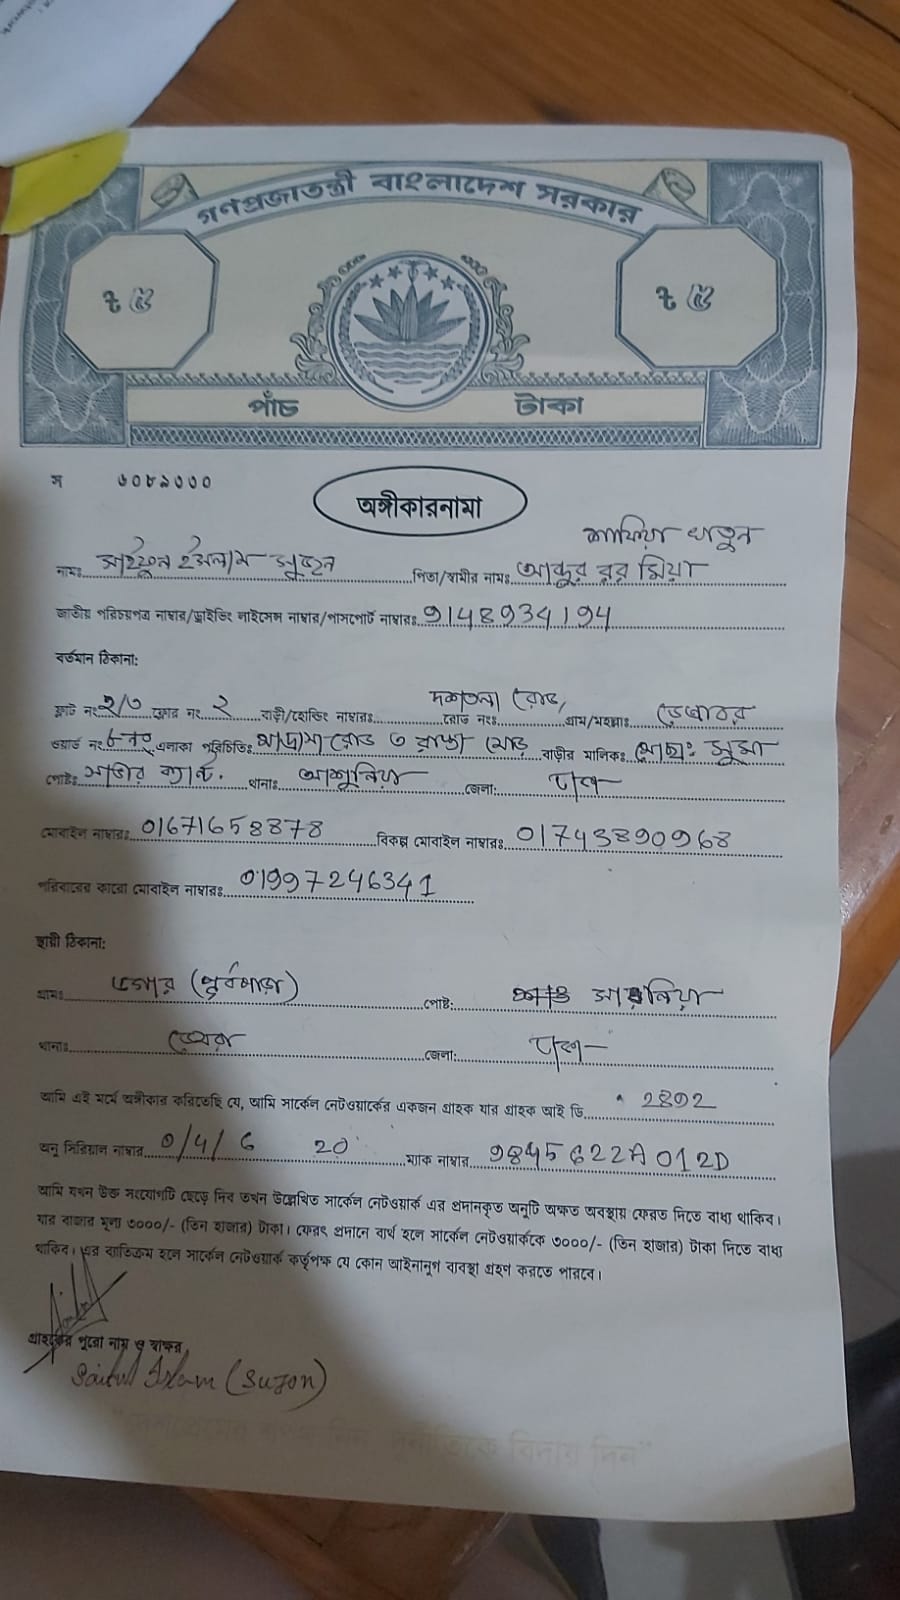 গণপ্রজাতন্ত্রী বাংলাদেশ সরকার
৳ ৫ ৳ ৫
পাঁচ টাকা
স ৬০৮৯৩৩০
অঙ্গীকারনামা
খাতুন
নামঃ সাইফুল ইসলাম সুজন পিতা/স্বামীর নামঃ মিয়া
জাতীয় পরিচয়পত্র নাম্বার/ড্রাইভিং লাইসেন্স নাম্বার/পাসপোর্ট নাম্বারঃ 9148934194
বর্তমান ঠিকানা:
ফ্লাট নং ২/৩ ফ্লোর নং ২ বাড়ী/হোল্ডিং নাম্বারঃ রোড নংঃ রোড, গ্রাম/মহল্লাঃ
ওয়ার্ড নং এলাকা পরিচিতিঃ মাদ্রাসা রোড ৩ রাস্তা মোড় বাড়ীর মালিকঃ মোছাঃ সুমা
পোষ্টঃ সাভার ক্যান্ট. থানাঃ আশুলিয়া জেলা: ঢাকা
মোবাইল নাম্বারঃ 01671658878 বিকল্প মোবাইল নাম্বারঃ 01743890968
পরিবারের কারো মোবাইল নাম্বারঃ 01997246341
স্থায়ী ঠিকানা:
গ্রামঃ (পূর্বপাড়া) পোষ্ট:
থানাঃ জেলা: ঢাকা
আমি এই মর্মে অঙ্গীকার করিতেছি যে, আমি সার্কেল নেটওয়ার্কের একজন গ্রাহক যার গ্রাহক আই ডি 2892
অনু সিরিয়াল নাম্বার 0/4/6 20 ম্যাক নাম্বার 9845622A012D
আমি যখন উক্ত সংযোগটি ছেড়ে দিব তখন উল্লেখিত সার্কেল নেটওয়ার্ক এর প্রদানকৃত অনুটি অক্ষত অবস্থায় ফেরত দিতে বাধ্য থাকিব।
যার বাজার মূল্য ৩০০০/- (তিন হাজার) টাকা। ফেরৎ প্রদানে ব্যর্থ হলে সার্কেল নেটওয়ার্ককে ৩০০০/- (তিন হাজার) টাকা দিতে বাধ্য
থাকিব। এর ব্যতিক্রম হলে সার্কেল নেটওয়ার্ক কর্তৃপক্ষ যে কোন আইনানুগ ব্যবস্থা গ্রহণ করতে পারবে।
গ্রাহকের পুরো নাম ও স্বাক্ষর
Saiful Islam (Sujon)
বিদায় দিন"